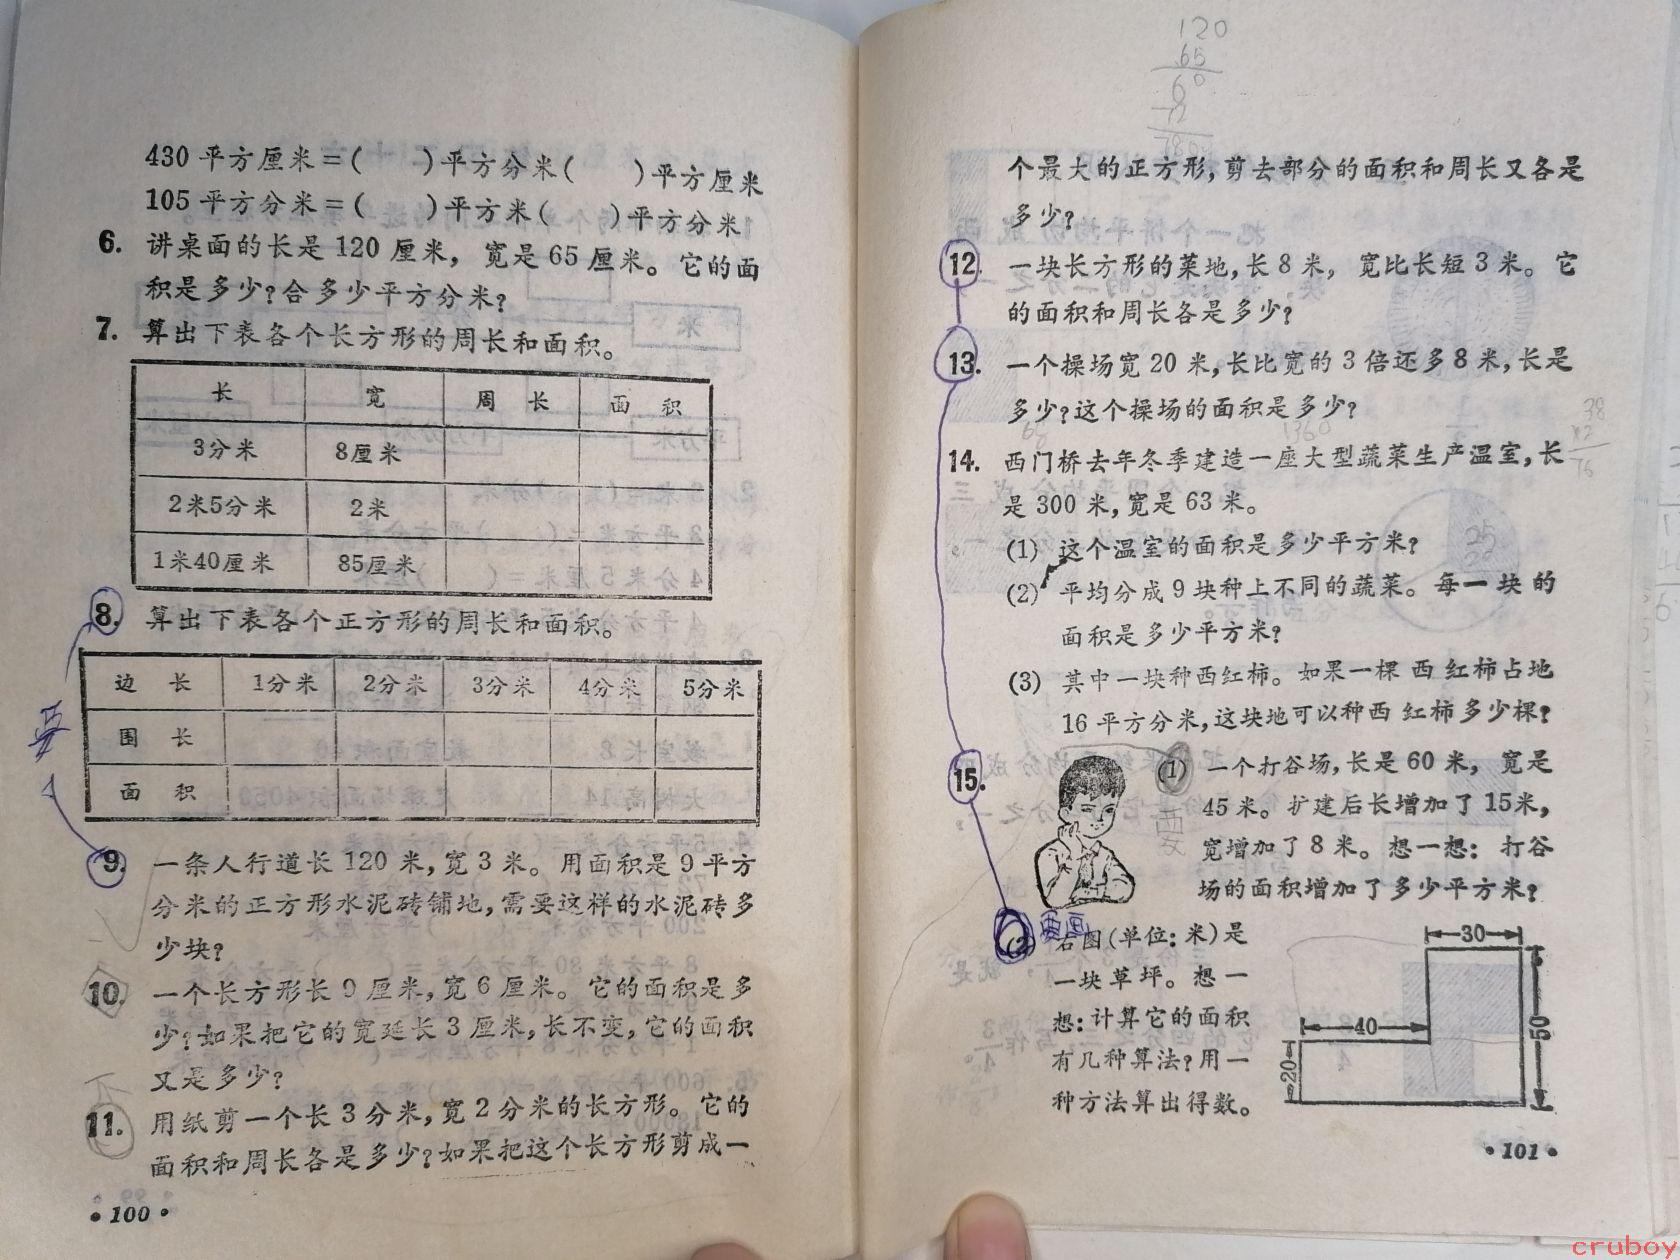 430 平方厘米=( )平方分米( )平方厘米
105 平方分米=( )平方米( )平方分米
6. 讲桌面的长是 120 厘米，宽是 65 厘米。它的面
积是多少?合多少平方分米?
7. 算出下表各个长方形的周长和面积。
长 宽 周 长 面 积
3分米 8厘米
2米5分米 2米
1米40厘米 85厘米
8. 算出下表各个正方形的周长和面积。
边 长 1分米 2分米 3分米 4分米 5分米
围 长
面 积
9. 一条人行道长 120 米，宽 3 米。用面积是 9 平方
分米的正方形水泥砖铺地，需要这样的水泥砖多
少块?
10. 一个长方形长 9 厘米，宽 6 厘米。它的面积是多
少?如果把它的宽延长 3 厘米，长不变，它的面积
又是多少?
11. 用纸剪一个长 3 分米，宽 2 分米的长方形。它的
面积和周长各是多少?如果把这个长方形剪成一
• 100 •
120
65
60
个最大的正方形，剪去部分的面积和周长又各是
多少?
12. 一块长方形的菜地，长 8 米，宽比长短 3 米。它
的面积和周长各是多少?
13. 一个操场宽 20 米，长比宽的 3 倍还多 8 米，长是
多少?这个操场的面积是多少?
68 1360
38
×2
76
14. 西门桥去年冬季建造一座大型蔬菜生产温室，长
是 300 米，宽是 63 米。
(1) 这个温室的面积是多少平方米?
(2) 平均分成 9 块种上不同的蔬菜。每一块的
面积是多少平方米?
(3) 其中一块种西红柿。如果一棵西红柿占地
16 平方分米，这块地可以种西红柿多少棵?
15. (1) 一个打谷场，长是 60 米，宽是
45 米。扩建后长增加了 15米，
宽增加了 8 米。想一想：打谷
场的面积增加了多少平方米?
(2) 右图(单位：米)是
一块草坪。想一
想：计算它的面积
有几种算法?用一
种方法算出得数。
30
40
50
20
• 101 •
cruboy